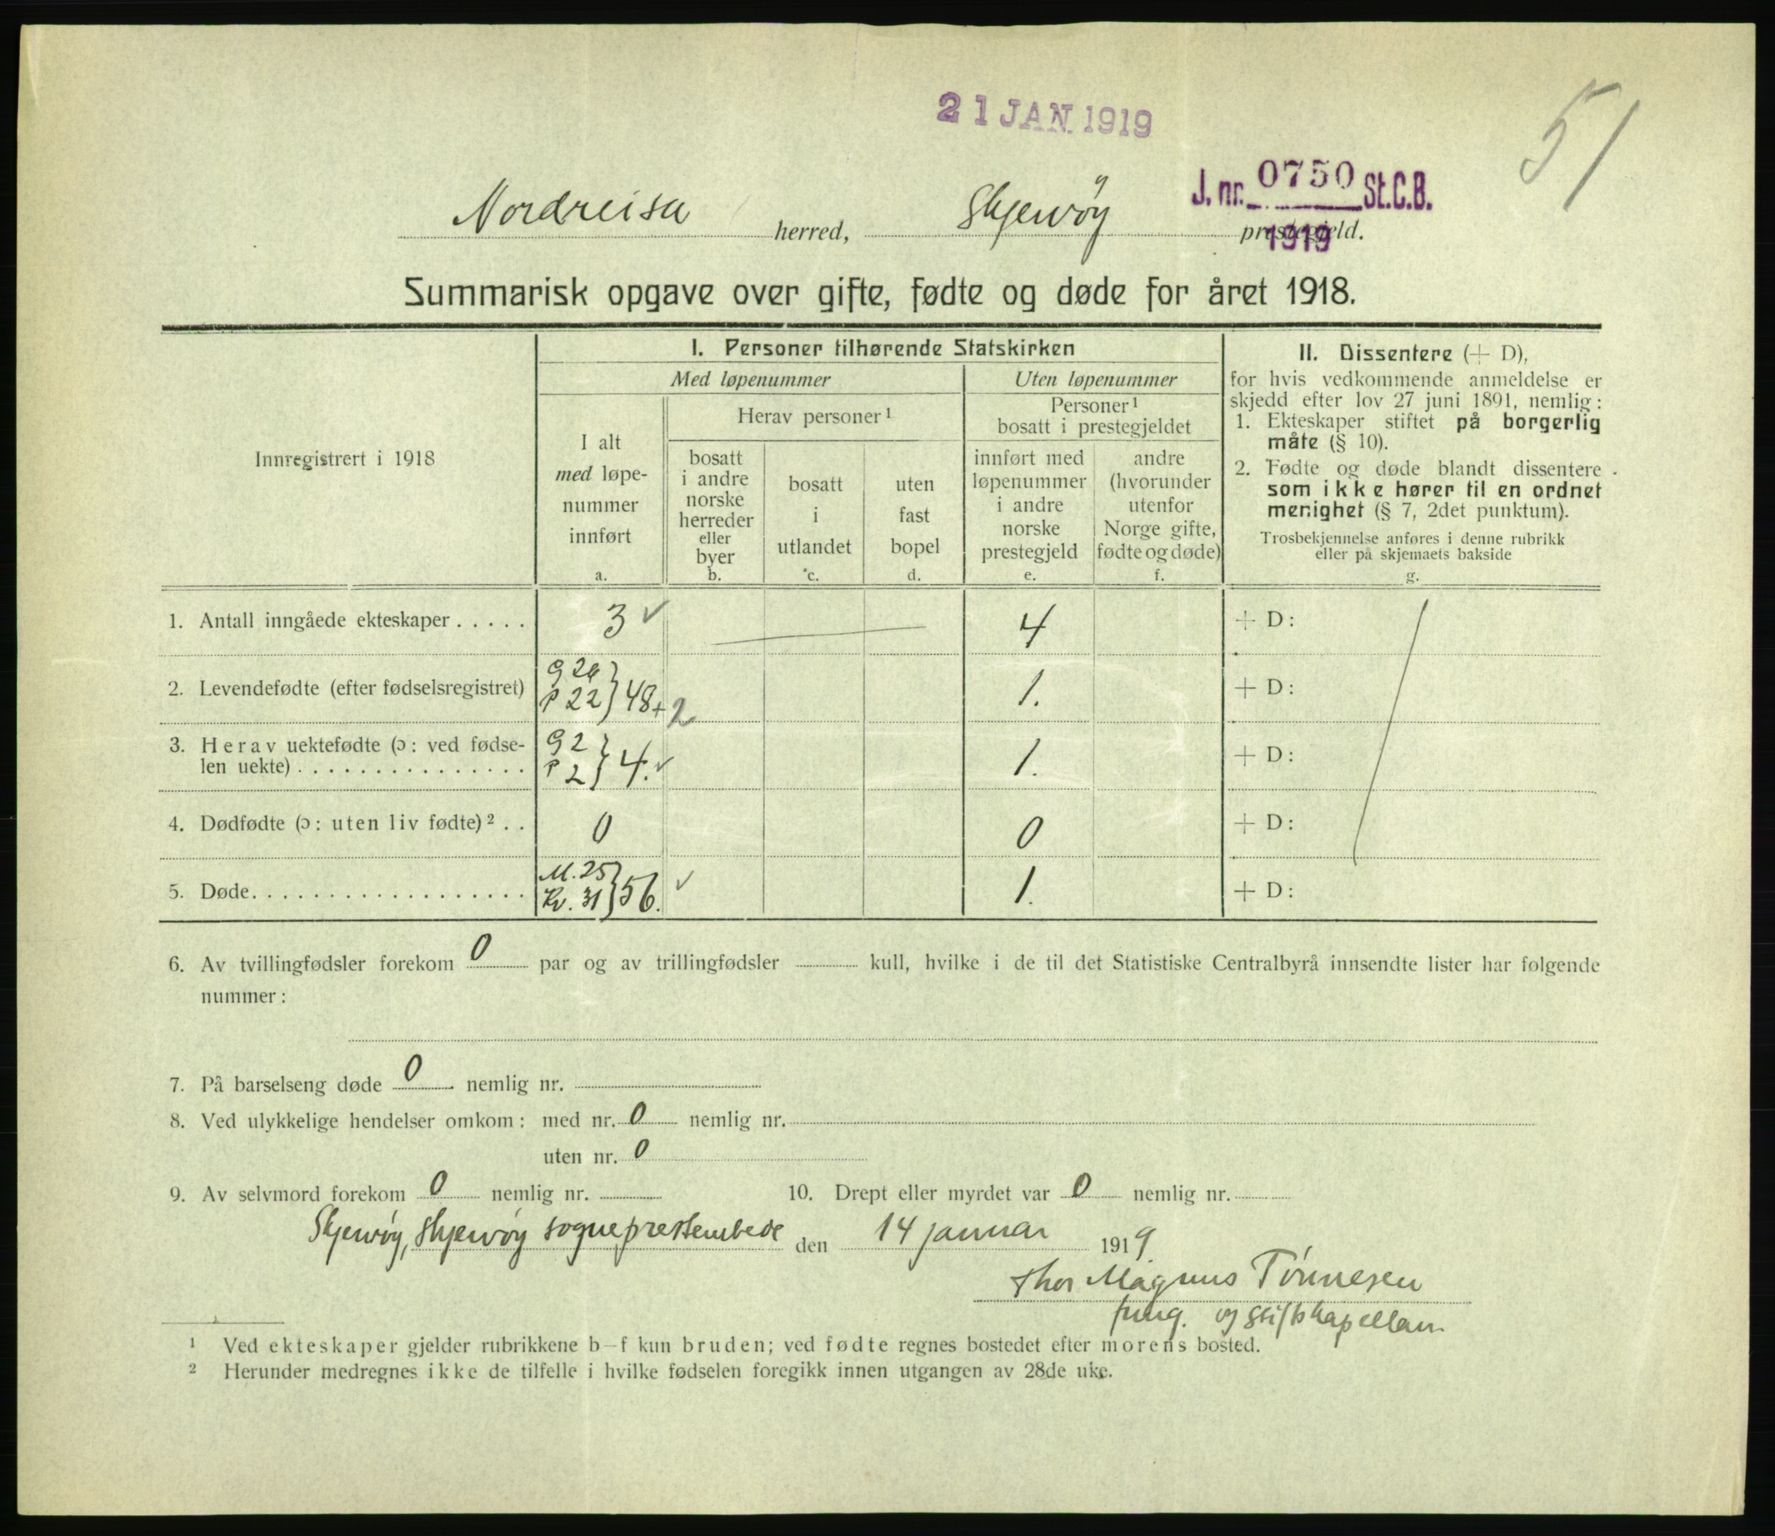 21 JAN. 1919
51
J. nr. 0750 St.C.B.
1919
Nordreisa herred, Skjervøy prestegjeld.
Summarisk opgave over gifte, fødte og døde for året 1918.
Innregistrert i 1918
I. Personer tilhørende Statskirken
Med løpenummer
Uten løpenummer
I alt
med løpe-
nummer
innført
a.
Herav personer¹
bosatt
i andre
norske
herreder
eller
byer
b.
bosatt
i
utlandet
c.
uten
fast
bopel
d.
Personer¹
bosatt i prestegjeldet
innført med
løpenummer
i andre
norske
prestegjeld
e.
andre
(hvorunder
utenfor
Norge gifte,
fødte og døde)
f.
II. Dissentere (+ D),
for hvis vedkommende anmeldelse er
skjedd efter lov 27 juni 1891, nemlig:
1. Ekteskaper stiftet på borgerlig
måte (§ 10).
2. Fødte og døde blandt dissentere
som ikke hører til en ordnet
menighet (§ 7, 2det punktum).
Trosbekjennelse anføres i denne rubrikk
eller på skjemaets bakside
g.
1. Antall inngåede ekteskaper . . . . . 3 ✓ 4 + D:
2. Levendefødte (efter fødselsregistret) G 26 P 22 } 48 + 2 1. + D:
3. Herav uektefødte (ɔ: ved fødse-
len uekte) . . . . . . . . . . . . . . . G 2 P 2 } 4. ✓ 1. + D:
4. Dødfødte (ɔ: uten liv fødte)² . . 0 0 + D:
5. Døde. . . . . . . . . . . . . . . . . . M. 25 Kv. 31 } 56. ✓ 1. + D:
6. Av tvillingfødsler forekom 0 par og av trillingfødsler kull, hvilke i de til det Statistiske Centralbyrå innsendte lister har følgende
nummer:
7. På barselseng døde 0 nemlig nr.
8. Ved ulykkelige hendelser omkom: med nr. 0 nemlig nr.
uten nr. 0
9. Av selvmord forekom 0 nemlig nr. 10. Drept eller myrdet var 0 nemlig nr.
Skjervøy, Skjervøy sogneprestembede den 14 januar 1919
Thor Magnus Tønnesen
fung. og stiftskapellan
¹ Ved ekteskaper gjelder rubrikkene b–f kun bruden; ved fødte regnes bostedet efter morens bosted.
² Herunder medregnes ikke de tilfelle i hvilke fødselen foregikk innen utgangen av 28de uke.